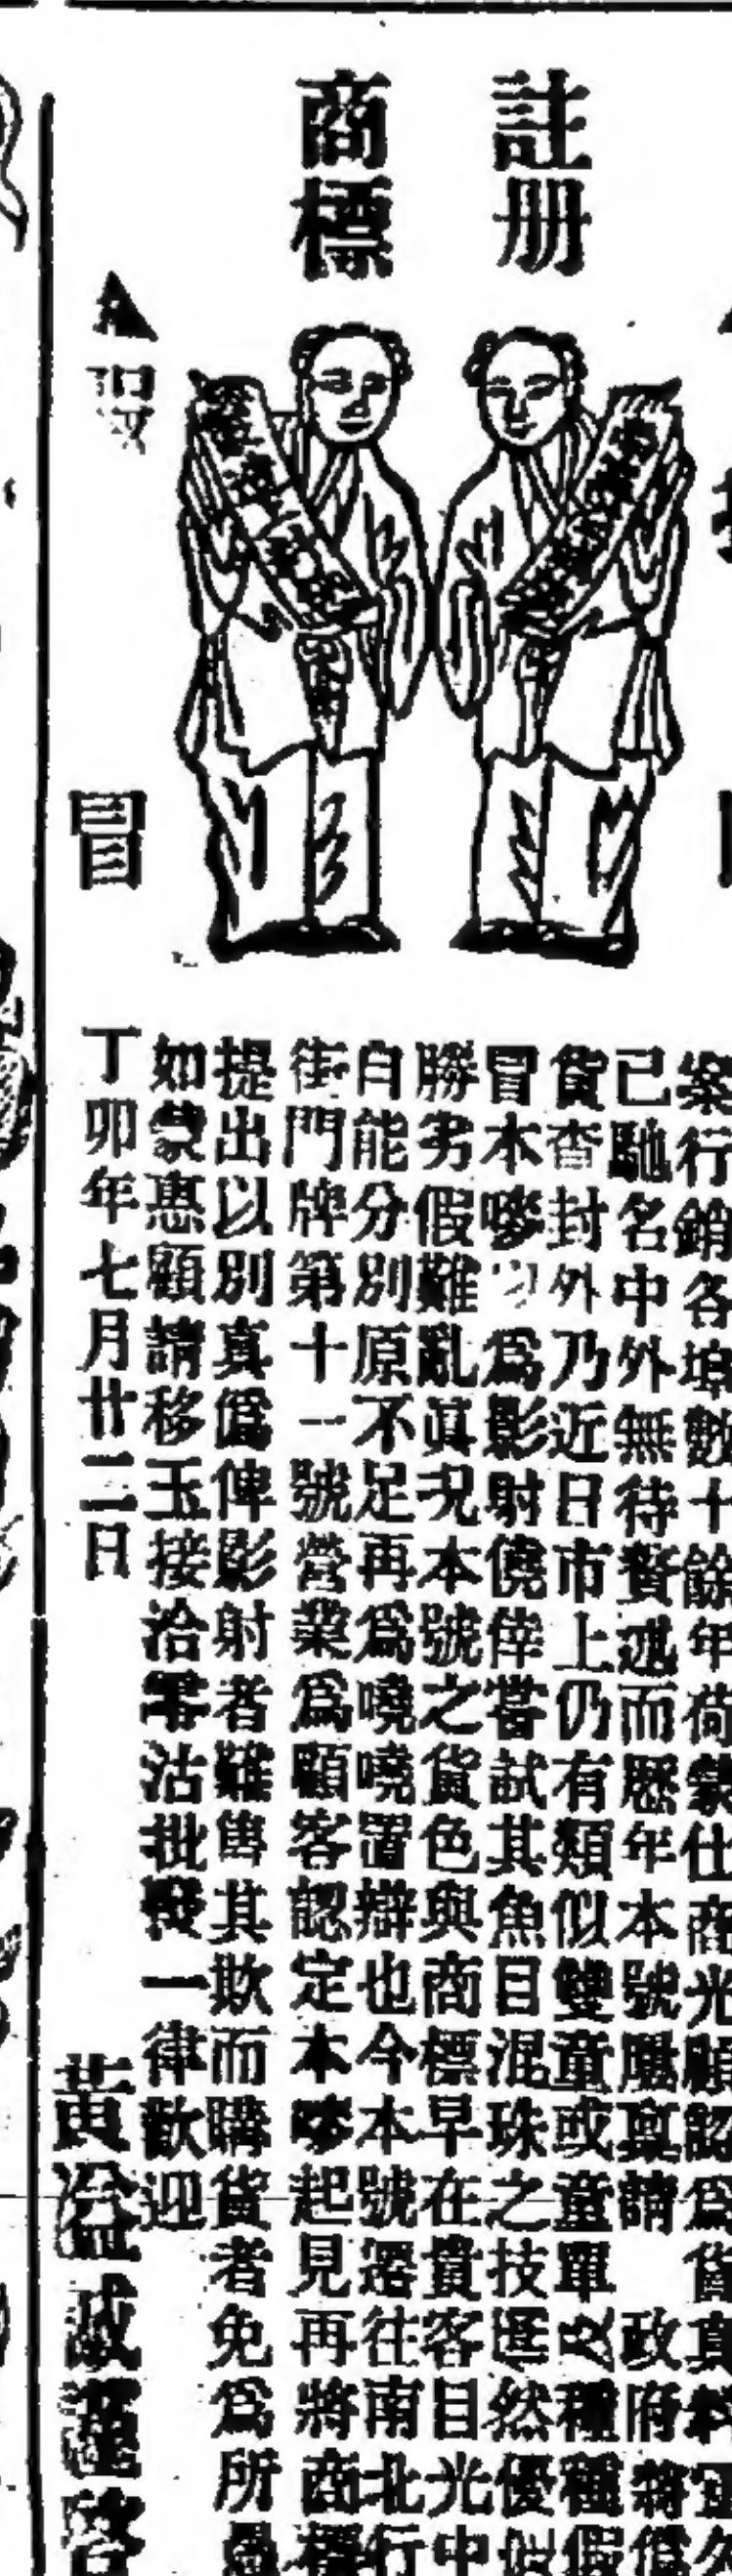 註册
商標
案行銷各埠數十餘年荷蒙仕商光顧認爲貨真料
已馳名中外無待贅述而歷年本號屢稟請 政府
貨查封外乃近日市上仍有類似雙童或童單及種種假
冒本嘜 爲影射僥倖嘗試其魚目混珠之技逞然優
勝劣假難亂眞況本號之貨色與商標早在貴客目光中
自能分別原不足再爲嘵嘵置辯也今本號遷往南北行
街門牌第十一號營業爲顧客認定本嘜起見再將商標
提出以別真僞俾影射者難售其欺而購貨者免爲所愚
如蒙惠顧請移玉接洽零沽批發一律歡迎
冒
丁卯年七月廿二日
黃 誠謹啓